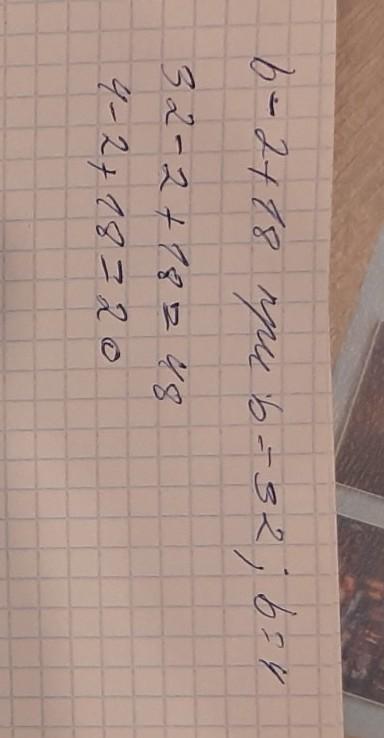 b - 2 + 18 при b = 32; b = 4
32 - 2 + 18 = 48
4 - 2 + 18 = 20